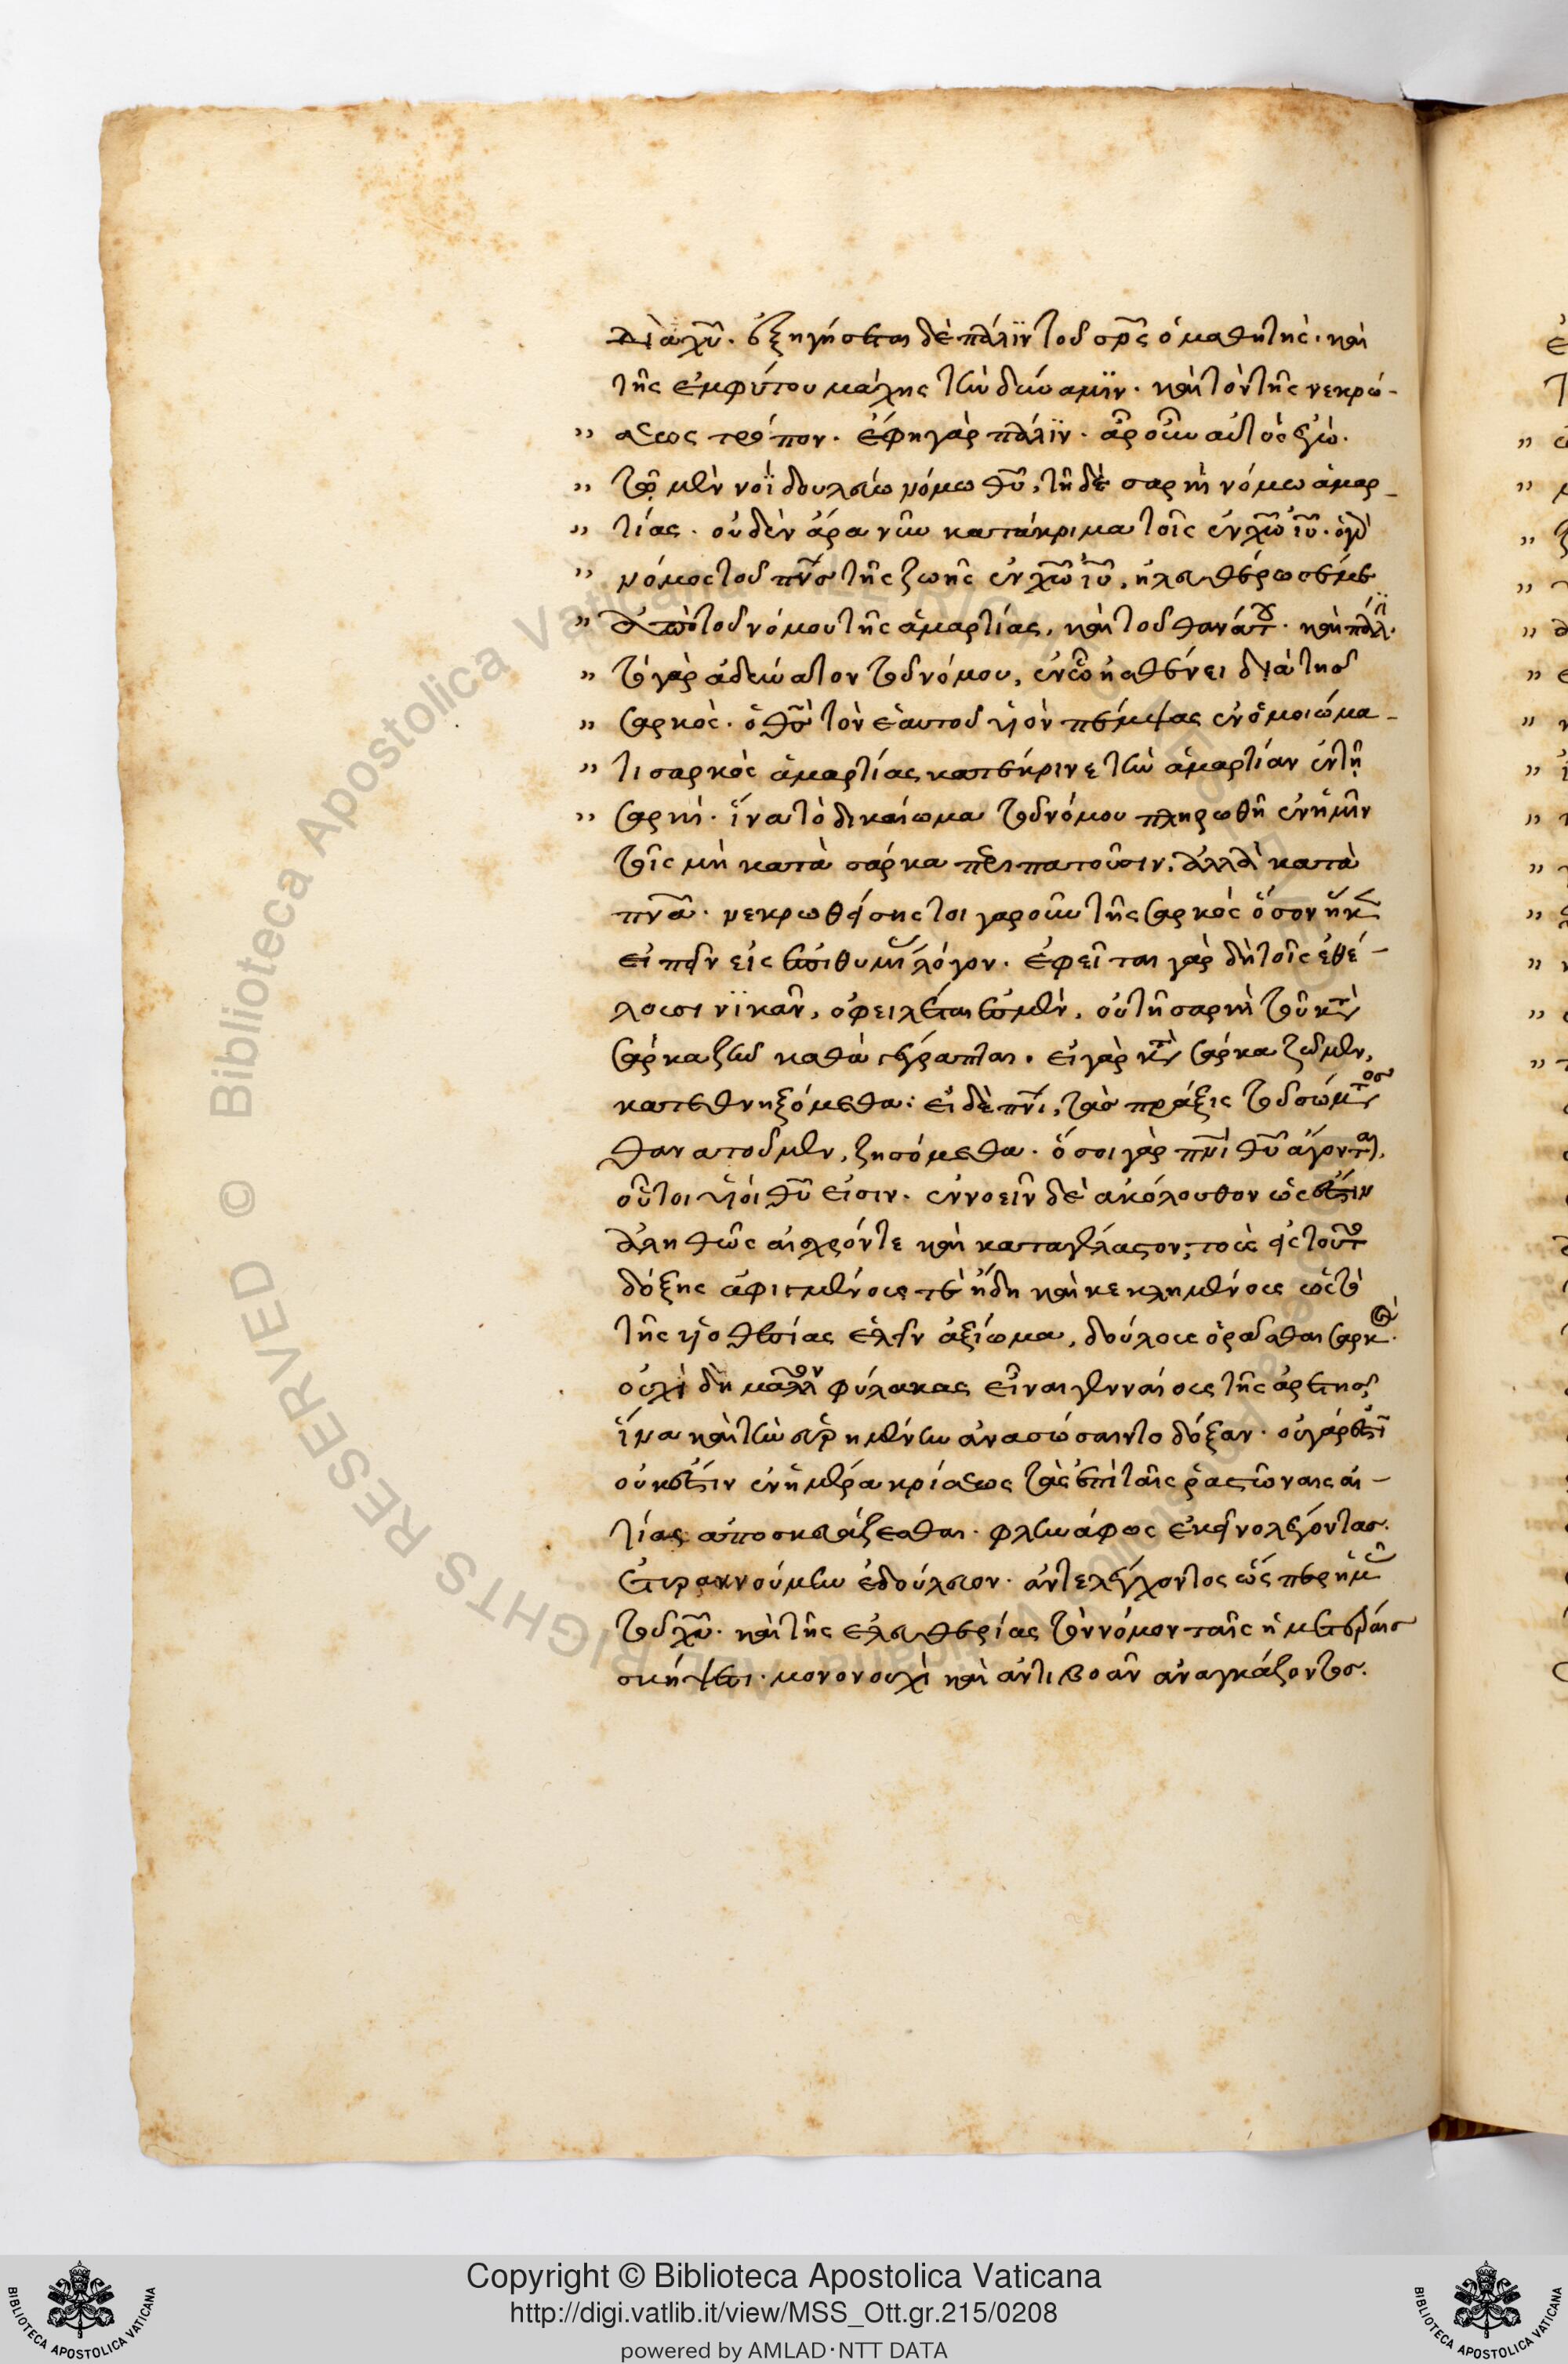 διὰ χῦ. ἐξηγήσεται δὲ πάλϊν τοῦ σρ̅ς ὁ μαθητὴς. καὶ
τῆς ἐμφύτου μάχης τὴν δύναμϊν. καὶ τὸν τῆς νεκρώ-
" σεως τρόπον. ἔφη γὰρ πάλϊν. ἆρ οὖν αὐτὸς ἐγὼ.
" τῷ μὲν νοῒ δουλεύω νόμω θῦ, τῇ δὲ σαρκὶ νόμω ἁμαρ-
" τίας. οὐδὲν ἄρα νῦν κατάκριμα τοῖς ἐν χῶ ἰῦ. ὁ γὰρ
" νόμος τοῦ πν̅σ τῆς ζωῆς ἐν χῶ ἰῦ, ἠλευθέρωσέ με
" ἀπὸ τοῦ νόμου τῆς ἁμαρτίας, καὶ τοῦ θανάτου. καὶ πάλϊν.
" τὸ γὰρ ἀδύνατον τοῦ νόμου, ἐν ὧ ἠσθένει διὰ τῆς
" σαρκὸς. ὁ θσ̅ τὸν ἑαυτοῦ υἱὸν πέμψας ἐν ὁμοιώμα-
" τι σαρκὸς ἁμαρτίας κατέκρινε τὴν ἁμαρτίαν ἐν τῇ
" σαρκί. ἵνα τὸ δικαίωμα τοῦ νόμου πληρωθῆ ἐν ἡμῖν
τοῖς μὴ κατὰ σάρκα περιπατοῦσιν, ἀλλὰ κατὰ
πνα̅. νεκρωθείσης τοι γαροῦν τῆς σαρκὸς ὅσον ἧκεν
εἰπεῖν εἰς ἐπιθυμίας λόγον. ἐφεῖται γὰρ δὴ τοῖς ἐθέ-
λουσι νϊκᾶν, ὀφειλέται ἐσμὲν, οὐ τῇ σαρκὶ τοῦ κατὰ
σάρκα ζῆν καθὰ γέγραπται. εἰ γὰρ κατὰ σάρκα ζῶμεν,
κατεθνηξόμεθα: εἰ δὲ πνι̅, τὰσ πράξις τοῦ σώματος
θανατοῦμεν, ζησόμεθα. ὅσοι γὰρ πνι̅ θῦ ἄγονται,
οὗτοι υἱοί θῦ εἰσιν. ἐννοεῖν δὲ ἀκόλουθον ὡς ἔστιν
ἀληθῶς αἰσχρόν τε καὶ καταγέλαστον, τοὺς εἰς τοῦτο
δόξης ἀφιγμένους τὲ ἤδη καὶ κεκλημένους ὡς τὸ
τῆς υἱοθεσίας ἑλεῖν ἀξίωμα, δούλους ὁρᾶσθαι σαρκὸς.
οὐχὶ δὴ μᾶλλον φύλακας εἶναι γενναίους τῆς ἀρετῆς,
ἵνα καὶ τὴν εἰρημένην ἀνασώσαιντο δόξαν. οὐ γὰρ ἔστι
οὐκ ἔστιν ἐν ἡμέρα κρίσεως τὰς ἐπὶ ταῖς ῥαστώναις αἰ-
τίας ἀποσκευάζεσθαι. φληνάφως ἐκεῖνο λέγοντας.
ἐτυραννούμην ἐδούλευον. ἀντελέγχοντος ὥσπερ ἡμῖν
τοῦ χῦ. καὶ τῆς ἐλευθερίας τὸν νόμον ταῖς ἡμετέραις
σκήψεσι. μονονουχὶ καὶ ἀντιβοᾶν ἀναγκάζοντος.
Copyright © Biblioteca Apostolica Vaticana
http://digi.vatlib.it/view/MSS_Ott.gr.215/0208
powered by AMLAD·NTT DATA